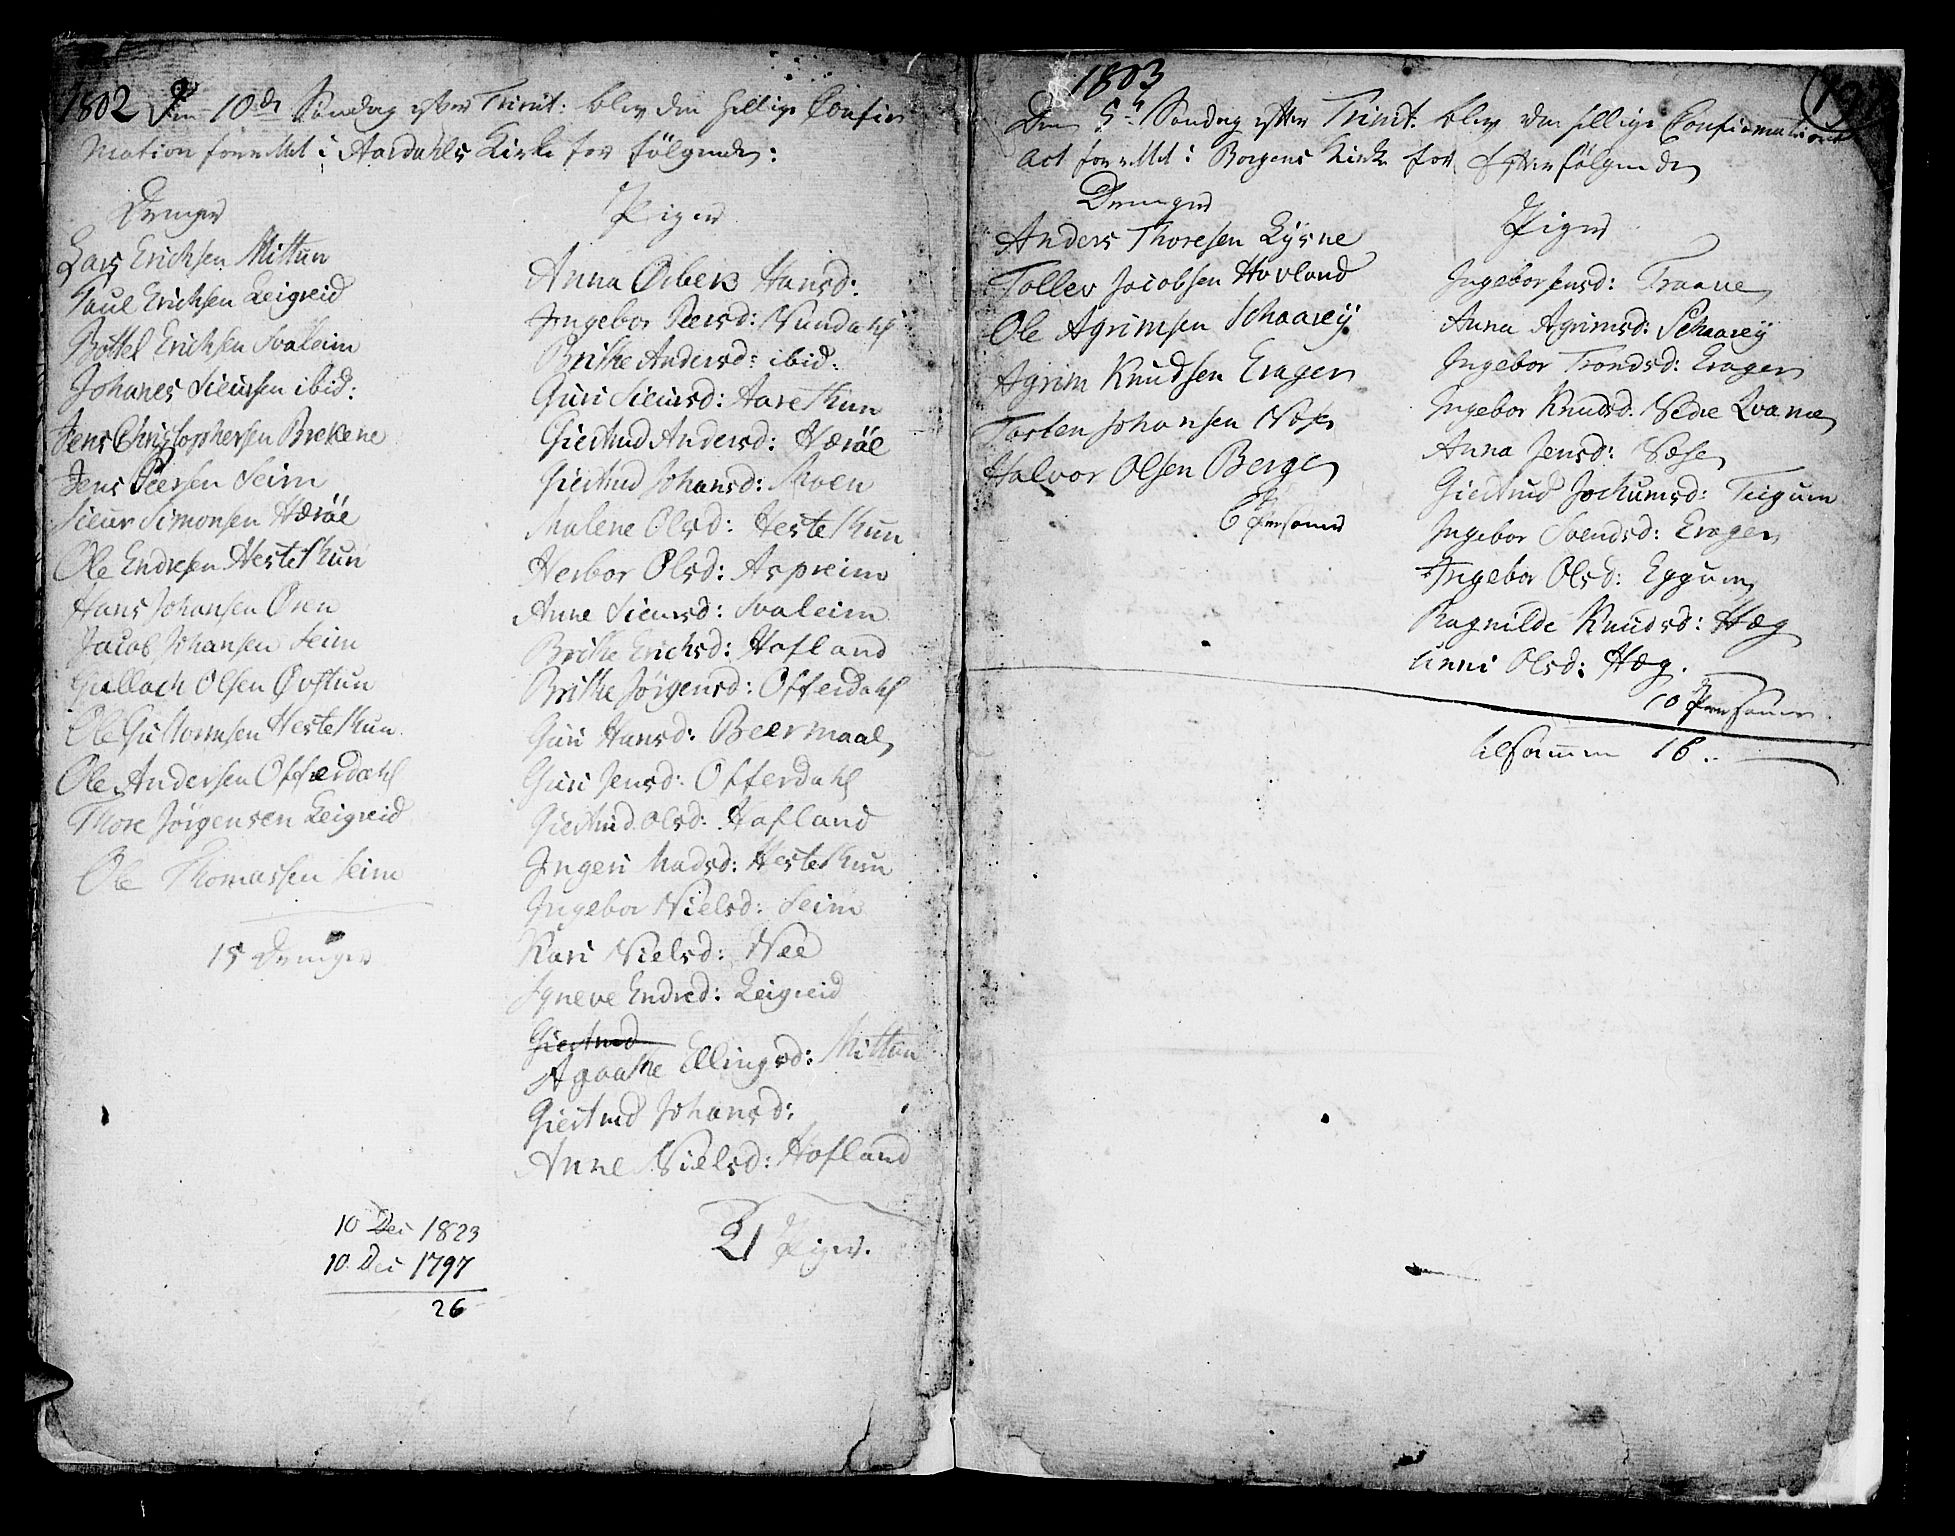 1802 Den 10de Söndag efter Trinit: blev den hellige Confir
mation forrettet i Aardahls Kirke for fölgende:
Drenger
Lars Erichsen Mittun
Paul Erichsen Leigreid
Bottel Erichsen Svaleim
Johanes Siursen ibid:
Jens Christophersen Brekene
Jens Peersen Seim
Siur Simonsen Hæröe
Ole Endresen Hestethun
Hans Johansen Øren
Jacob Johansen Seim
Gullach Olsen Øvstun
Ole Guttormsen Hestethun
Ole Andersen Offerdahl
Thore Jörgensen Leigreid
Ole Thomassen Seim
15 Drenger
Piger
Anna Hansd:
Ingebor Peersd: Nundahl
Brithe Andersd: ibid:
Guri Siursd: Aarethun
Giertrud Andersd: Hæröe
Giertrud Johansd: Moen
Malene Olsd: Hestethun
Herbor Olsd: Aspreim
Anne Siursd: Svaleim
Brithe Erichsd: Hofland
Brithe Jörgensd: Offerdahl
Guri Hansd: Beermaal
Guri Jensd: Offerdahl
Giertrud Olsd: Hofland
Ingeri Madsd: Hestethun
Ingebor Nielsd: Seim
Kari Nielsd: Nee
Synneve Endred: Leigreid
Giertrud
Agaathe Ellingsd: Mittun
Giertrud Johansd:
Anne Nielsd: Hofland
21 Piger.
10 Dec 1823
10. Dec 1797
26
1803
Den 5te Söndag efter Trinit: blev den hellige Confirmations
act forrettet i Borgens Kirke for Efterfölgende
Drenger
Anders Thoresen Lysne
Tollev Jacobsen Hovland
Ole Agrimsen Schaarey
Agrim Knudsen Erager
Torsten Johansen Næse
Halvor Olsen Berge
6 Personer
Piger
Ingebor Jensd: Traave
Anna Agrimsd: Schaarey
Ingebor Trondsd: Erager
Ingebor Knudsd. Nedre Qvame
Anna Jensd: Næse
Giertrud Jochumsd: Tiugum
Ingebor Svendsd: Erager
Ingebor Olsd: Eggum
Ragnilde Knudsd: Hæg
Unni Olsd: Hæg.
10 Personer
tilsammen 16.